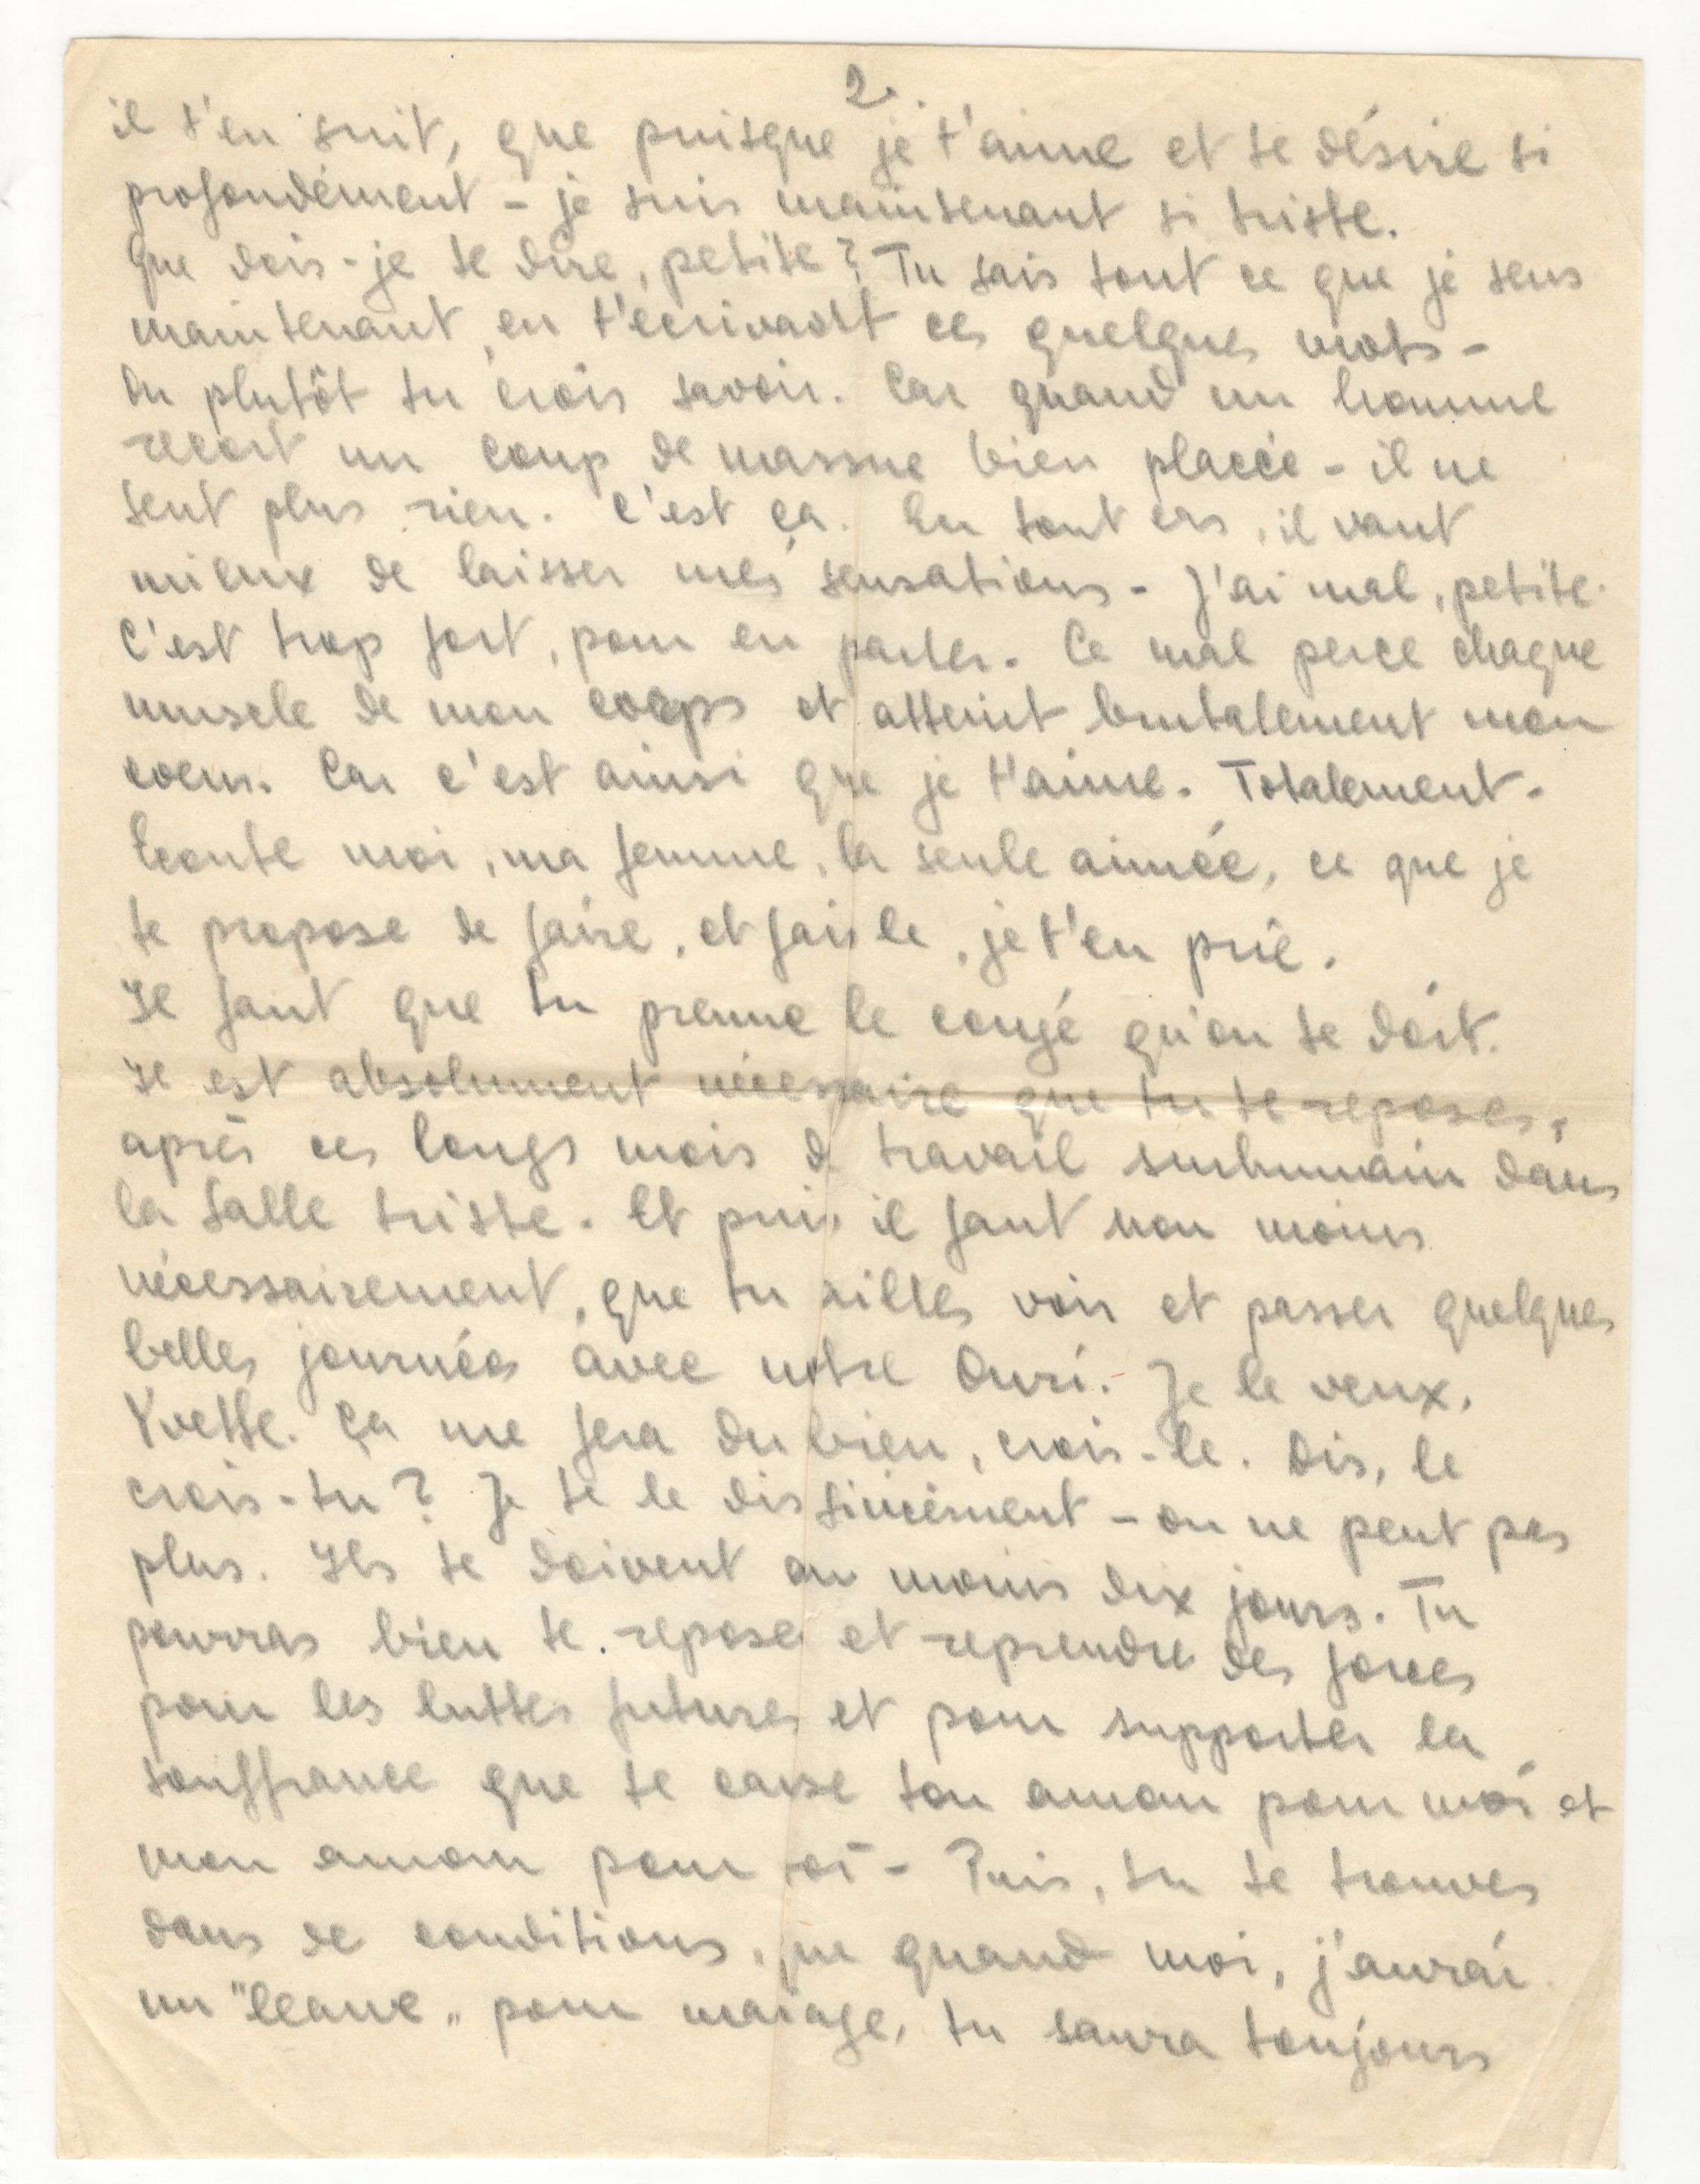 2.
il s'en suit, que puisque je t'aime et te désire si
profondément - je suis maintenant si triste.
Que dois-je te dire, petite? Tu sais tout ce que je sens
maintenant, en t'écrivant ces quelques mots -
Ou plutôt tu crois savoir. Car quand un homme
recoit un coup de massue bien placée - il ne
sent plus rien. C'est ça. En tout cas, il vaut
mieux de laisser mes sensations - J'ai mal, petite.
C'est trop fort, pour en parler. Ce mal perce chaque
muscle de mon corps et atteint brutalement mon
coeur. Car c'est ainsi que je t'aime. Totalement.
Ecoute moi, ma femme, la seule aimée, ce que je
te propose de faire, et fais le, je t'en prie.
Il faut que tu prenne le congé qu'on te doit.
Il est absolument nécessaire que tu te reposes,
après ces longs mois de travail surhumain dans
la salle triste. Et puis il faut non moins
nécessairement, que tu ailles voir et passer quelques
belles journées avec notre Ouri. Je le veux,
Yvette. Ça me fera du bien, crois-le. Dis, le
crois-tu? Je te le dis sincèrement - on ne peut pas
plus. Ils te doivent au moins dix jours. Tu
pourras bien te reposer et reprendre des forces
pour les luttes futures et pour supporter la
souffrance que te cause ton amour pour moi et
mon amour pour toi - Puis, tu te trouves
dans de conditions, que quand moi, j'aurai
un "leave" pour mariage, tu saura toujours